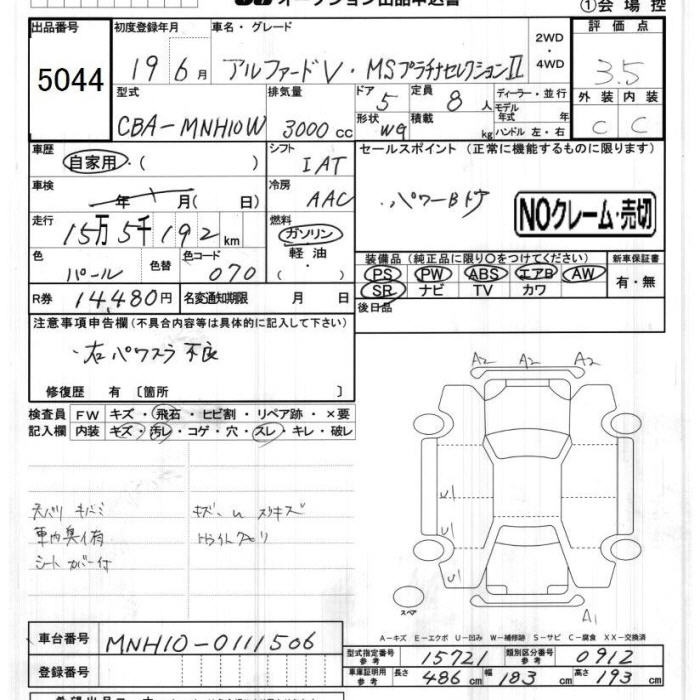 オークション出品申込書 ①会場控
出品番号 初度登録年月 車名・グレード 2WD・4WD 評価点
5044 19 6月 アルファードV・MSプラチナセレクションⅡ 3.5
型式 排気量 ドア 5 定員 8人 ディーラー・並行 外装 内装
CBA-MNH10W 3000cc 形状 W9 積載 kg モデル年式 年 ハンドル 左・右 C C
車歴 自家用・( ) シフト IAT セールスポイント (正常に機能するものに限ります)
車検 年 月( 日) 冷房 AAC パワーBドア NOクレーム・売切
走行 15万5千192km 燃料 ガソリン・軽油・( )
色 パール 色替 色コード 070 装備品 (純正品に限り○をつけてください) 新車保証書
PS PW ABS エアB AW 有・無
SR ナビ TV カワ
R券 14,480円 名変通知期限 月 日 後日品
注意事項申告欄(不具合内容等は具体的に記入して下さい)
右パワスラ不良
修復歴 有 〔箇所 〕
検査員 FW キズ・飛石・ヒビ割・リペア跡・×要
記入欄 内装 キズ・汚レ・コゲ・穴・スレ・キレ・破レ
A2 A2 A2
キズ
車内臭イ有
シートカバー付
U1
U1
U1
スペア
A1
A-キズ E-エクボ U-凹み W-補修跡 S-サビ C-腐食 XX-交換済
車台番号 MNH10-0111506
型式指定番号 参考 15721 類別区分番号 参考 0912
登録番号
車庫証明用 参考 長さ 486cm 幅 183cm 高さ 193cm